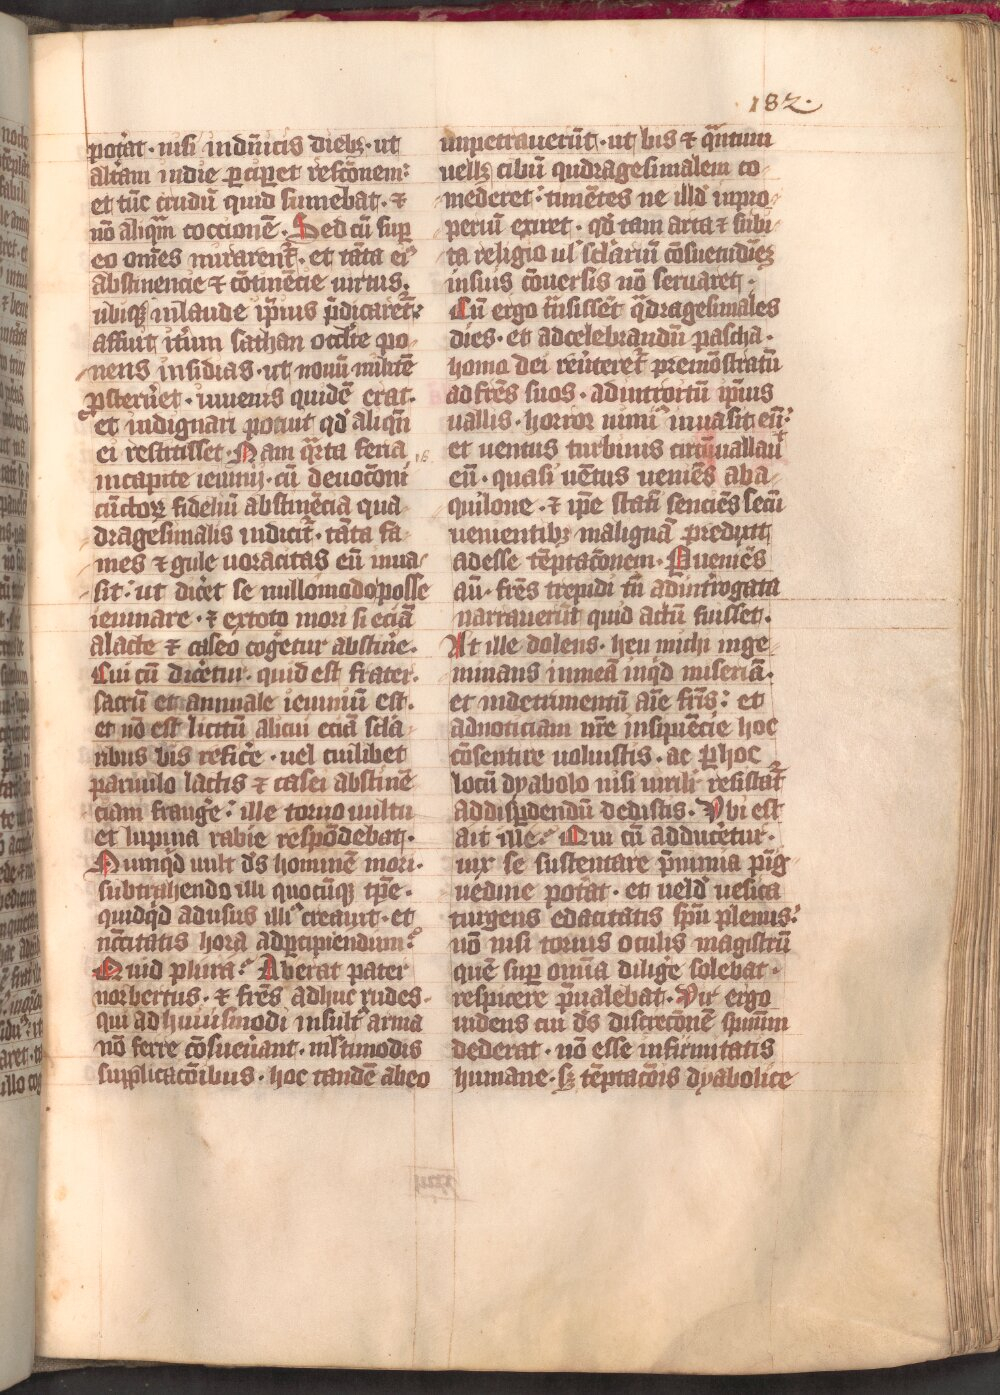 182.
potat · nisi in dn̄icis dieb; · ut
altam in die pciperet refectōnem :
et tūc crudū quid sumebat · ⁊
nō aliqm̄ coccionē · Sed cū sup
eo om̄es mirarent̄ · et tāta ei⁹
abstinencie ⁊ cōtinēcie uirtus ·
ubiq; in laude ip̄ius p̄dicaret̄ :
affuit it̄um sathan occl̄te po
nens insidias · ut nouū militē
ꝓsterneret · iuuenis quidē erat ·
et indignari potuit qd̄ aliqn̄
ei restitisset · Nam q̄rta feria
in capite ieiunij · cū deuocōni
cūctoꝝ fideliū abstinēcia qua
dragesimalis indicit̄ · tāta fa
mes ⁊ gule uoracitas eū inua
sit : ut dicēt se nullomodo posse
ieiunare · ⁊ ex toto mori si eciā
a lacte ⁊ caseo cogēetur abstinē ·
Cui cū dicētur · quid est frater ·
sacrū et annuale ieiuniū est ·
et nō est licitū alicui eciā scla
ribus bis reficē · uel cuilibet
paruulo lactis ⁊ casei abstinē
ciam frangē : ille toruo uultu
et lupina rabie respōdebat ·
Nunqd uult ds̄ hominē mori ·
subtrahendo illi quocūq; tp̄e ·
quidqd ad usus illi⁹ creauit · et
nc̄citatis hora ad pcipiendum :
Quid plura : Aberat pater
norbertus · ⁊ frēs adhuc rudes ·
qui ad huiusmodi insult⁹ arma
nō ferre cōsueuant · mltimodis
supplicacōibus · hoc tandē ab eo
impetrauerūt · ut bis ⁊ q̄ntum
uell; cibū qudragesimalem co
mederet : timētes ne illd̄ in pro
periū exiret · qd̄ tam arta ⁊ subi
ta religio ul⁹ sclariū cōsuetudiēz
ipsius cōuersis nō seruaret ·
Cū ergo tn̄sissēt q̄dragesimales
dies · et ad celebrandū pascha ·
homo dei reūteret̄ premōstratū
ad frēs suos · ad introitū ip̄ius
uallis · horror nimi⁹ inuasit eū :
et uentus turbinis circūuallauit
eū · quasi uētus ueniēs ab a
quilone · ⁊ ip̄e statī senciēs secū
uenientib; malignā predixit
adesse tēptatōnem · Pueniēs
aū · frēs trepidi tn̄ ad intrrogata
narrauerūt quid actū fuisset ·
At ille dolens · heu michi inge
minans in meā inqd miseriā ·
et in detrimentū aīe frīs : et
ad noticiam nr̄e insipiēcie hoc
cōsentire uoluistis · ac p hoc
locū dyabolo nisi uirili⁹ resistat̄
ad dispdendū dedistis · Vbi est
ait ille : Qui cū adducētur ·
uix se sustentare p̄ nimia pīg
uedine potat · et uelud uesica
turgens edacitatis spū plenus :
nō nisi toruis oculis magistrū
quē sup omīa diligē solebat ·
respicere p̄ualebat · Vir ergo
uidens cui ds̄ discretōnē spirituum
dederat · nō esse infirmitatis
humane · s; tēptatōis dyabolice